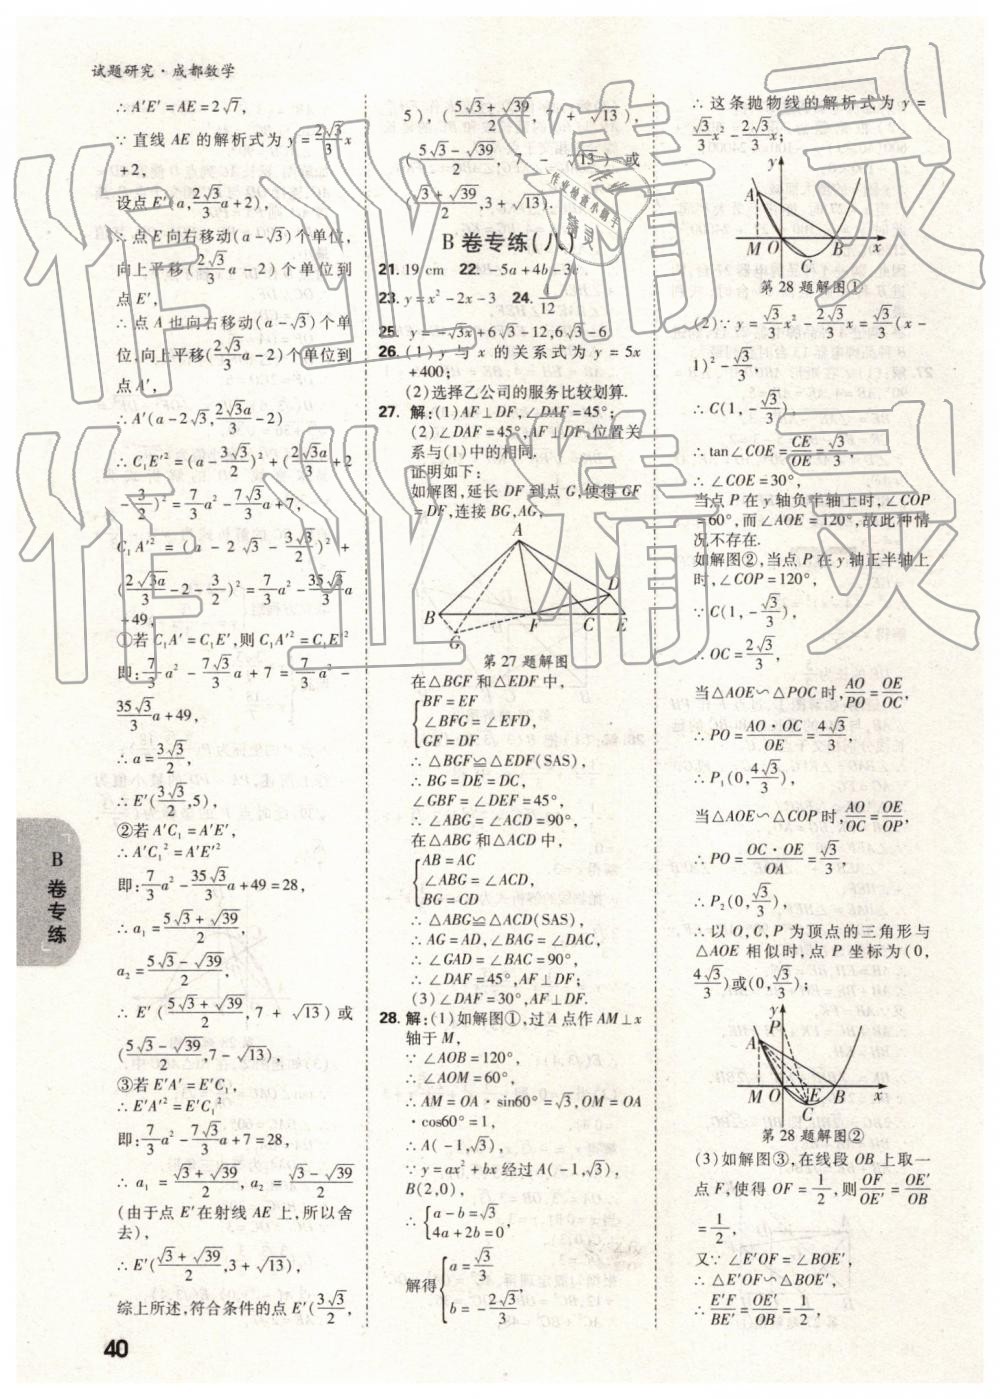 试题研究·成都数学
∴A′E′=AE=2√7,
∵直线 AE 的解析式为 y=(2√3/3)x
+2,
设点E′(a,(2√3/3)a+2),
∴点E向右移动(a-√3)个单位,
向上平移((2√3/3)a-2)个单位到
点E′,
∴点A也向右移动(a-√3)个单
位,向上平移((2√3/3)a-2)个单位到
点A′,
∴A′(a-2√3,(2√3a/3)-2)
∴C₁E′²=(a-3√3/2)²+(2√3a/3+2
-3/2)²=(7/3)a²-(7√3/3)a+7,
C₁A′²=(a-2√3-3√3/2)²+
(2√3a/3-2-3/2)²=(7/3)a²-(35√3/3)a
+49,
①若C₁A′=C₁E′,则C₁A′²=C₁E′²
即:(7/3)a²-(7√3/3)a+7=(7/3)a²-
(35√3/3)a+49,
∴a=3√3/2,
∴E′(3√3/2,5),
②若A′C₁=A′E′,
∴A′C₁²=A′E′²
即:(7/3)a²-(35√3/3)a+49=28,
∴a₁=(5√3+√39)/2,
a₂=(5√3-√39)/2,
∴E′((5√3+√39)/2,7+√13)或
((5√3-√39)/2,7-√13),
③若E′A′=E′C₁,
∴E′A′²=E′C₁²
即:(7/3)a²-(7√3/3)a+7=28,
∴a₁=(√3+√39)/2,a₂=(√3-√39)/2
(由于点E′在射线AE上,所以舍
去),
∴E′((√3+√39)/2,3+√13),
综上所述,符合条件的点E′(3√3/2,
5),((5√3+√39)/2,7+√13),
((5√3-√39)/2,7-√13)或
((√3+√39)/2,3+√13).
B卷专练(八)
21. 19 cm 22. -5a+4b-3c
23. y=x²-2x-3 24. 1/12
25. y=-√3x+6√3-12,6√3-6
26. (1)y与x的关系式为y=5x
+400;
(2)选择乙公司的服务比较划算.
27. 解:(1)AF⊥DF,∠DAF=45°;
(2)∠DAF=45°,AF⊥DF,位置关
系与(1)中的相同.
证明如下:
如解图,延长DF到点G,使得GF
=DF,连接BG,AG,
A
D
B
G
F
C
E
第27题解图
在△BGF和△EDF中,
{BF=EF
∠BFG=∠EFD,
GF=DF
∴△BGF≌△EDF(SAS),
∴BG=DE=DC,
∠GBF=∠DEF=45°,
∴∠ABG=∠ACD=90°,
在△ABG和△ACD中,
{AB=AC
∠ABG=∠ACD,
BG=CD
∴△ABG≌△ACD(SAS),
∴AG=AD,∠BAG=∠DAC,
∴∠GAD=∠BAC=90°,
∴∠DAF=45°,AF⊥DF;
(3)∠DAF=30°,AF⊥DF.
28. 解:(1)如解图①,过A点作AM⊥x
轴于M,
∵∠AOB=120°,
∴∠AOM=60°,
∴AM=OA·sin60°=√3,OM=OA
·cos60°=1,
∴A(-1,√3),
∵y=ax²+bx经过A(-1,√3),
B(2,0),
∴{a-b=√3
4a+2b=0,
解得{a=√3/3
b=-2√3/3,
∴这条抛物线的解析式为y=
(√3/3)x²-(2√3/3)x;
y
A
M
O
B
x
C
第28题解图①
(2)∵y=(√3/3)x²-(2√3/3)x=(√3/3)(x-
1)²-√3/3,
∴C(1,-√3/3),
∴tan∠COE=CE/OE=√3/3,
∴∠COE=30°,
当点P在y轴负半轴上时,∠COP
=60°,而∠AOE=120°,故此种情
况不存在.
如解图②,当点P在y轴正半轴上
时,∠COP=120°,
∵C(1,-√3/3),
∴OC=2√3/3,
当△AOE∽△POC时,AO/PO=OE/OC,
∴PO=AO·OC/OE=4√3/3,
∴P₁(0,4√3/3),
当△AOE∽△COP时,AO/OC=OE/OP,
∴PO=OC·OE/OA=√3/3,
∴P₂(0,√3/3),
∴以O,C,P为顶点的三角形与
△AOE相似时,点P坐标为(0,
4√3/3)或(0,√3/3);
y
P
A
M
O
B
x
E
第28题解图②
(3)如解图③,在线段OB上取一
点F,使得OF=1/2,则OF/OE′=OE′/OB
=1/2,
又∵∠E′OF=∠BOE′,
∴△E′OF∽△BOE′,
∴E′F/BE′=OE′/OB=1/2,
B卷专练
40
作业精灵
作业精灵
作业检查小帮手
精灵